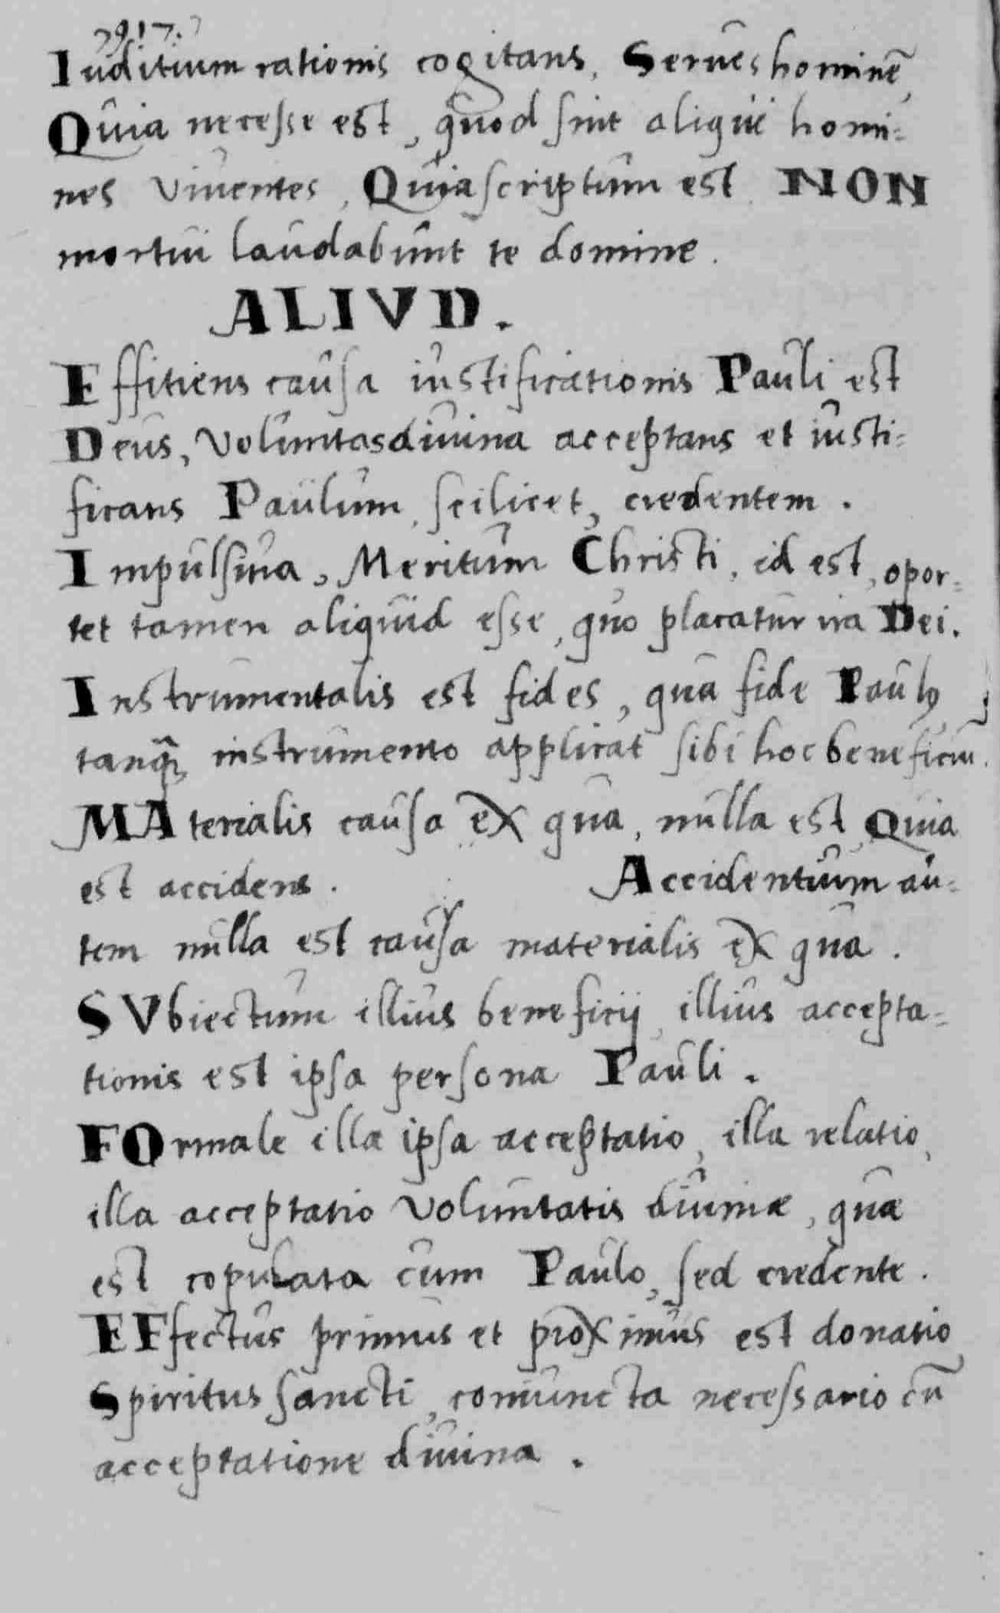 Iuditium rationis cogitans, Serues hominē,
Quia necesse est, quod sint aliqui homi=
nes viuentes, Quia scriptum est NON
mortui laudabunt te domine.
ALIVD.
Effitiens causa iustificationis Pauli est
Deus, Voluntas diuina acceptans et iusti=
ficans Paulum, scilicet, credentem.
Impulsiua, Meritum Christi, id est, opor=
tet tamen aliquid esse, quo placatur ira Dei.
Instrumentalis est fides, qua fide Paulꝰ
tanquā instrumento applicat sibi hoc beneficiū.
MAterialis causa ex qua, nulla est Quia
est accidens. Accidentium au=
tem nulla est causa materialis ex qua.
SVbiectum illius beneficij, illius accepta=
tionis est ipsa persona Pauli.
FOrmale illa ipsa acceptatio, illa relatio,
illa acceptatio Voluntatis diuinæ, quæ
est copulata cum Paulo, sed credente.
EFfectus primus et proximus est donatio
Spiritus sancti, coniuncta necessario cū
acceptatione diuina.